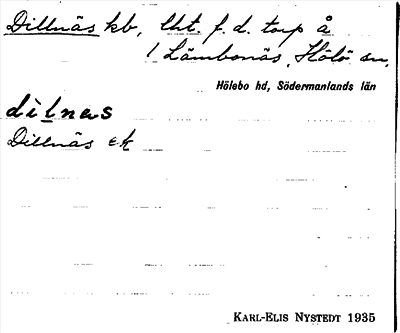 Dillnäs kb, lht. f. d. torp å
1 Lämbonäs, Hölö sn,
Hölebo hd, Södermanlands län
dìlnɛs
Dillnäs ek
KARL-ELIS NYSTEDT 1935